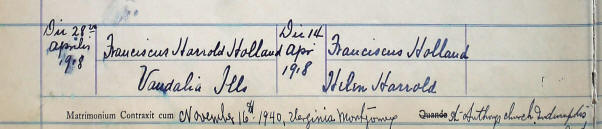 Die 28va Aprilis 1918 Franciscus Harrold Holland Vandalia Ills Die 14 Apr 1918 Franciscus Holland Helen Harrold
Matrimonium Contraxit cum November 16th, 1940, Virginia Montgomery Quando St. Anthony church Indianapolis